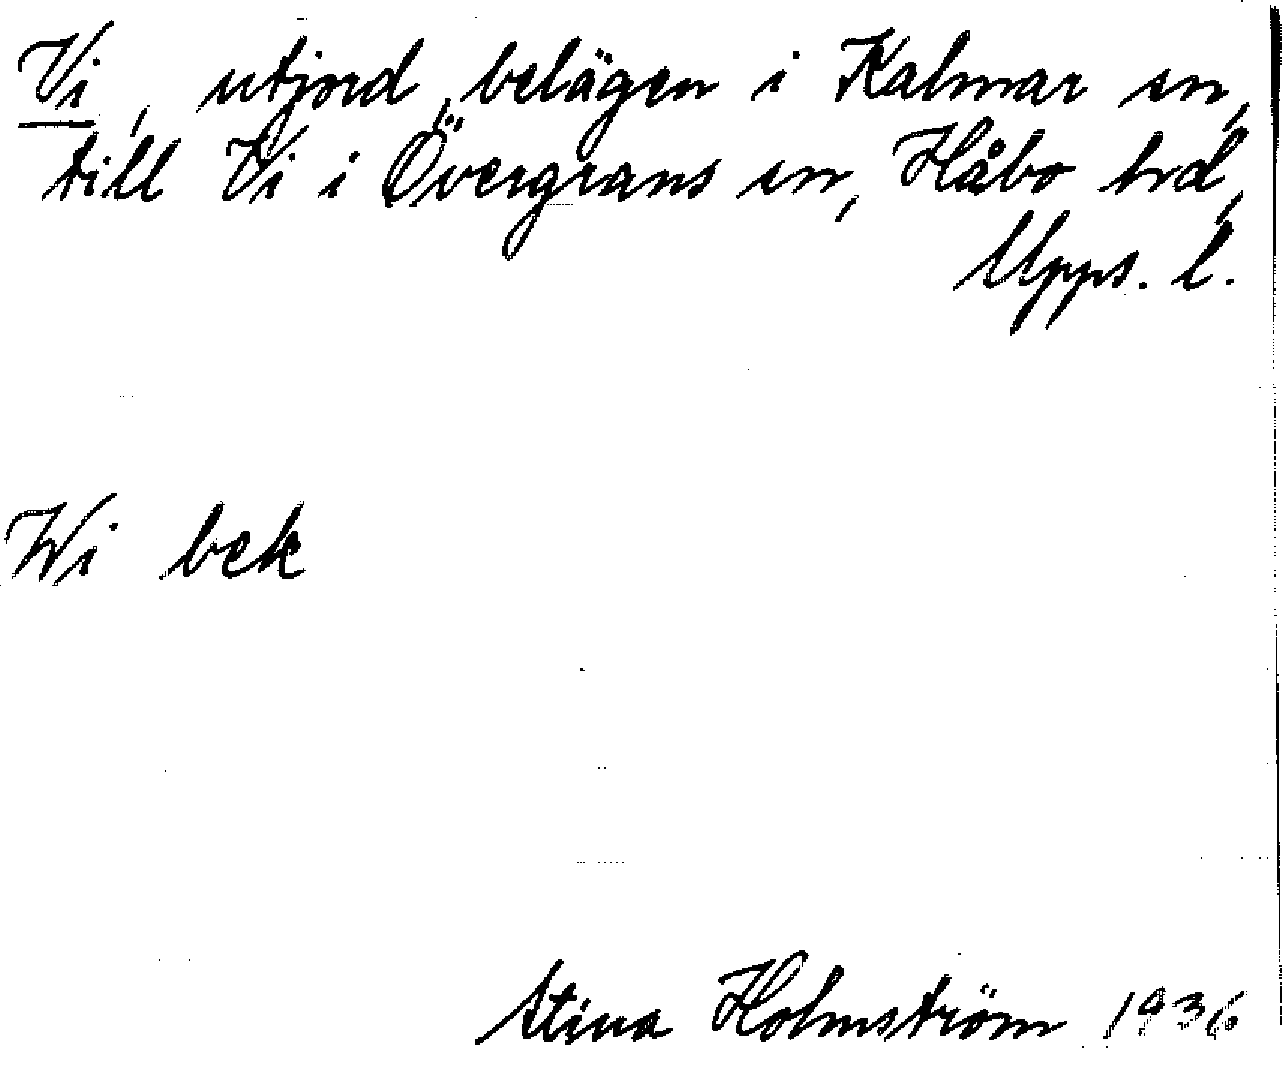 Vi, utjord, belägen i Kalmar sn,
till Vi i Övergrans sn, Håbo hrd,
Upps. l.
Wi bek
Stina Holmström 1936